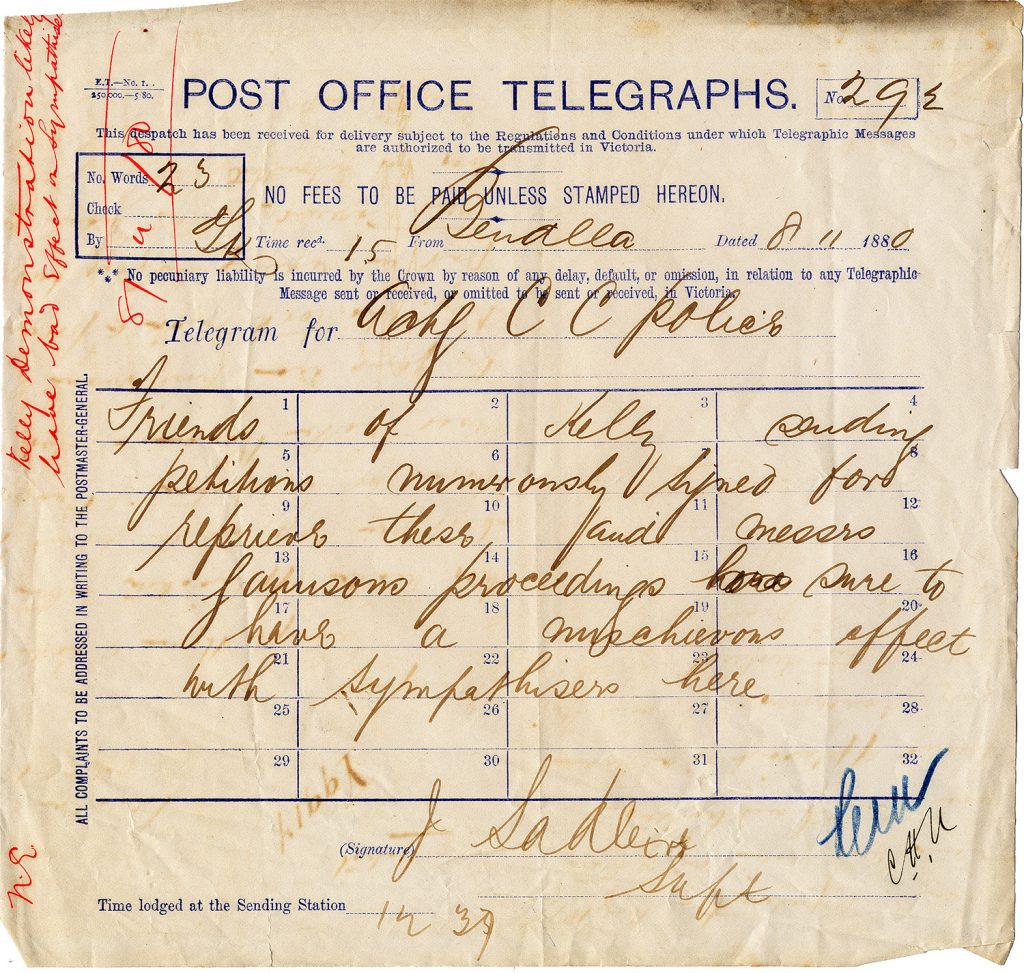 Kelly Demonstration likely
have bad effect on sympathisers
8/11/80
E.T.—No. 1.
250,000.—5/80.
POST OFFICE TELEGRAPHS.
No. 29
This despatch has been received for delivery subject to the Regulations and Conditions under which Telegraphic Messages
are authorized to be transmitted in Victoria.
No. Words 23
Check
By
NO FEES TO BE PAID UNLESS STAMPED HEREON.
Time recd. 15 From Benalla Dated 8 11 1880
*** No pecuniary liability is incurred by the Crown by reason of any delay, default, or omission, in relation to any Telegraphic
Message sent or received, or omitted to be sent or received, in Victoria.
Telegram for Actg C C Police
ALL COMPLAINTS TO BE ADDRESSED IN WRITING TO THE POSTMASTER-GENERAL.
1 2 3 4
Friends of Kelly sending
5 6 8
petitions numerously signed for
9 10 11 12
reprieve these and messrs
13 14 15 16
Gaunsons proceedings sure to
17 18 19 20
have a mischievous effect
21 22 23 24
with sympathisers here.
25 26 27 28
29 30 31 32
(Signature) J Sadleir
Supt
C.H.N
Time lodged at the Sending Station 12 37